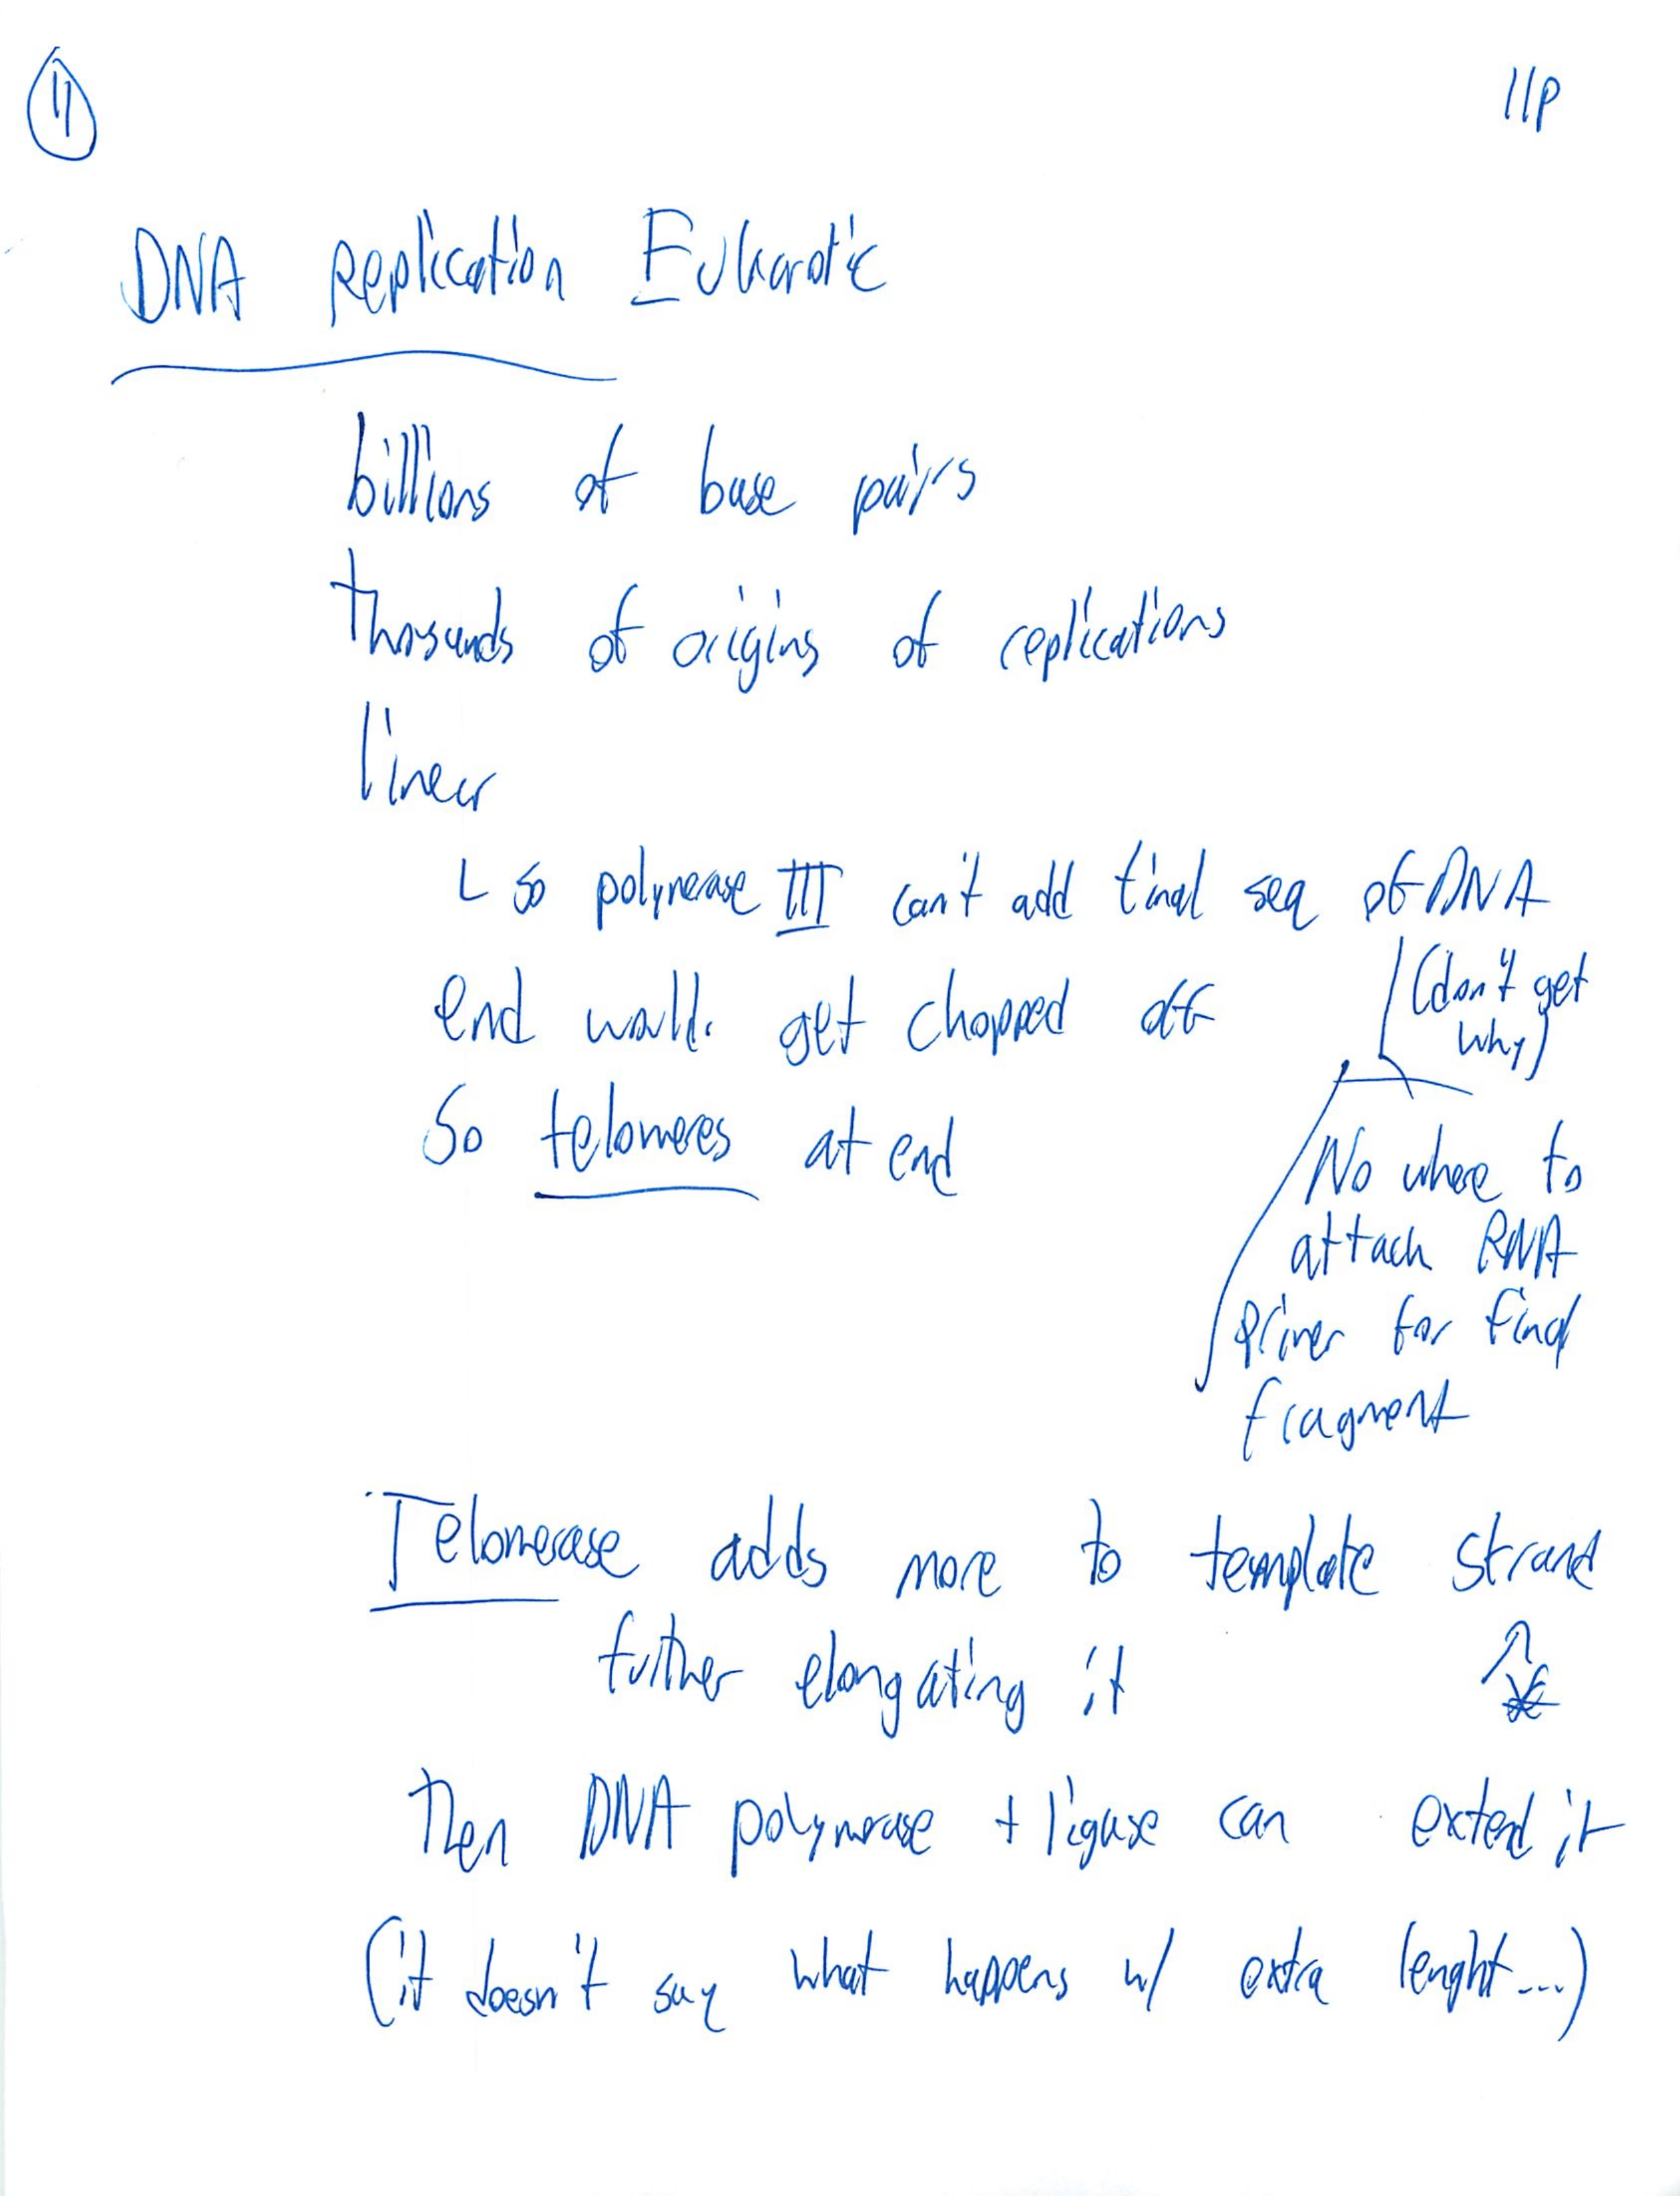 11
11p
DNA Replication Eukarotic
billions of base pairs
thousands of origins of replications
linear
L so polymerase III can't add final seq of DNA
(don't get
why)
end would get chopped off
So telomeres at end
No where to
attach RNA
primer for final
fragment
Telomerase adds more to template strand
further elongating it
Then DNA polymerase + ligase can extend it
(it doesn't say what happens w/ extra lenght...)